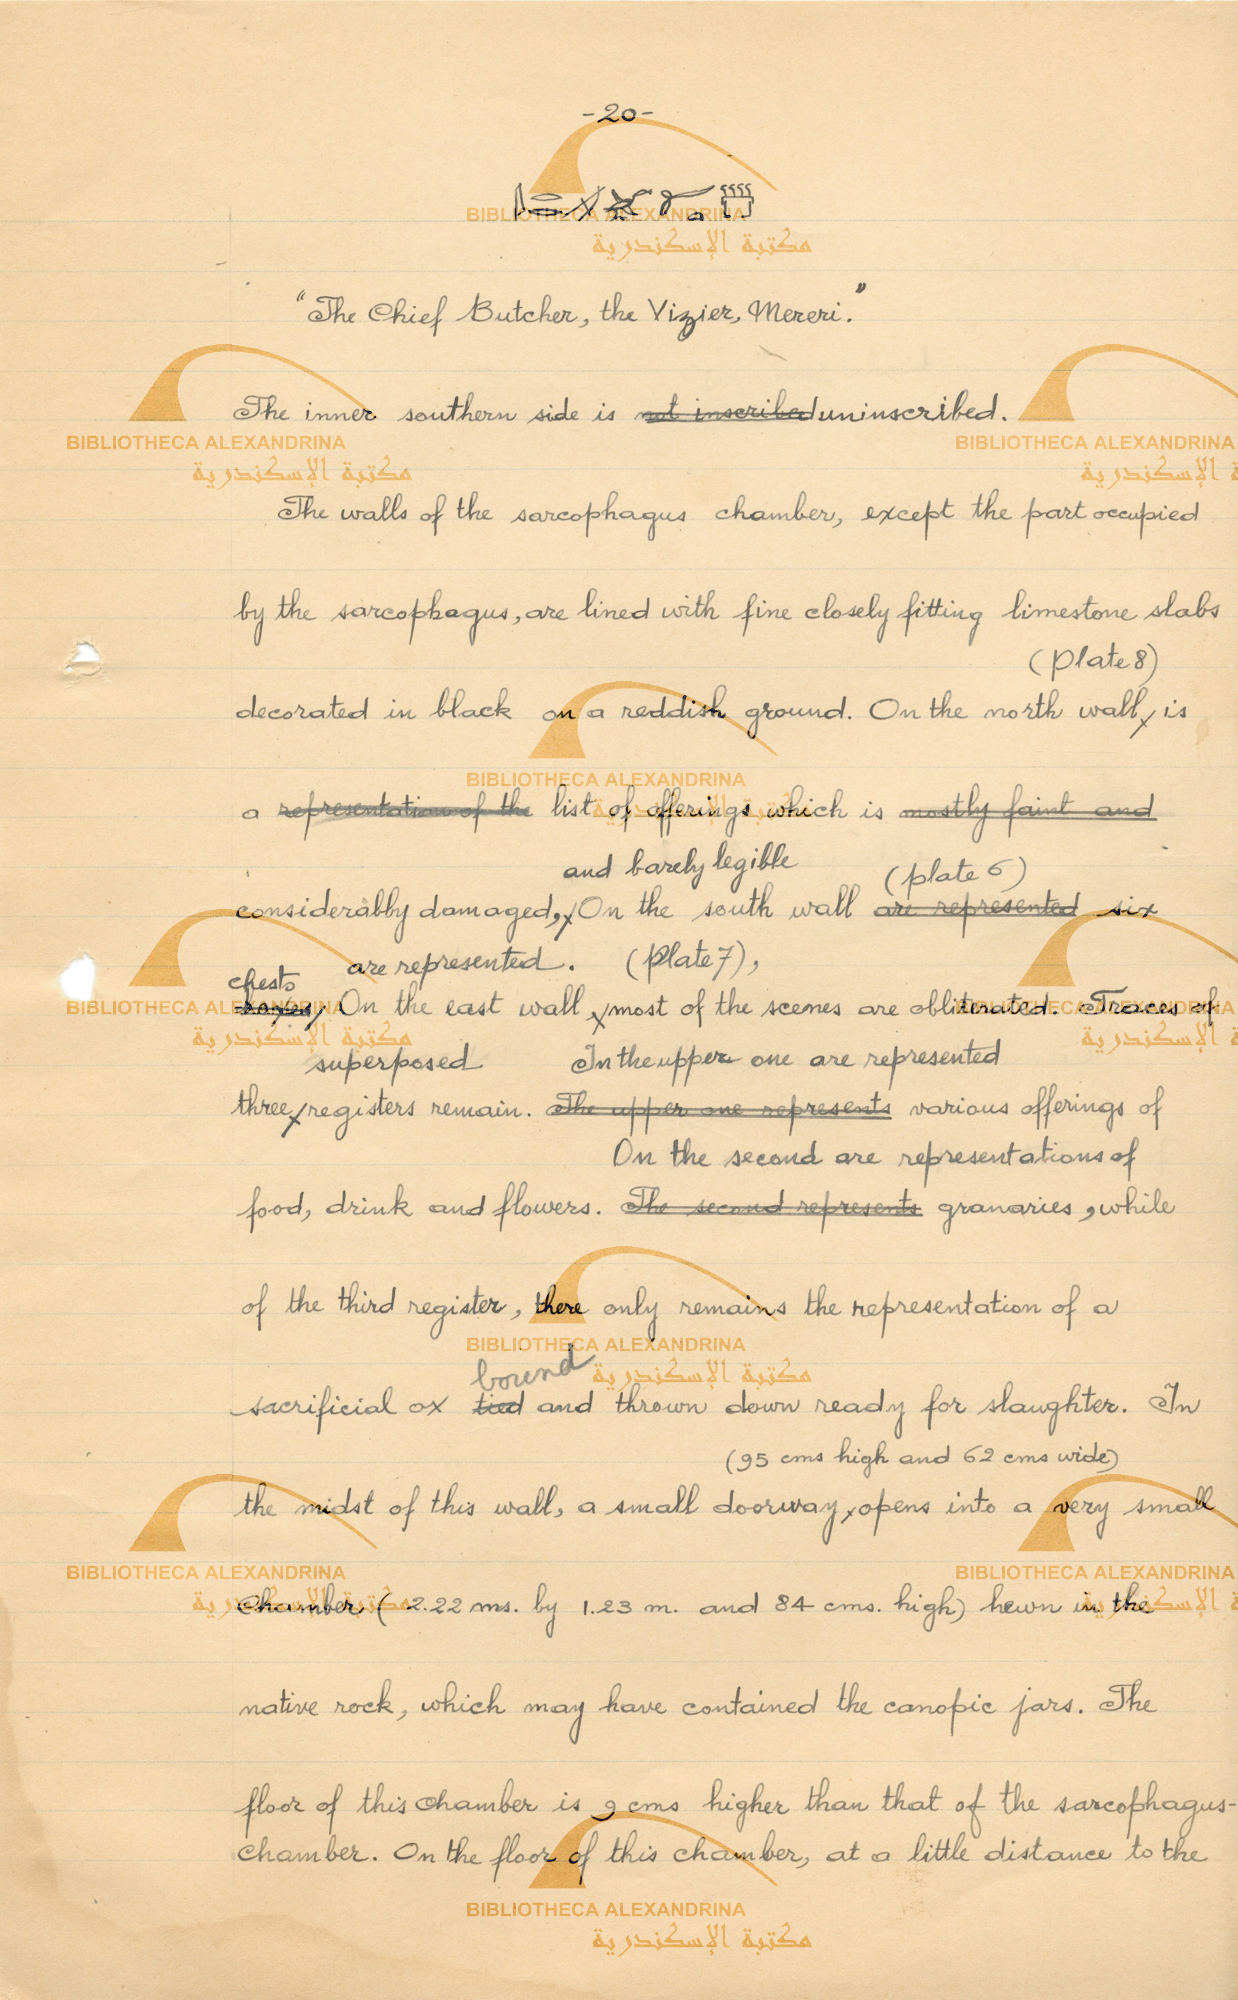 -20-
"The Chief Butcher, the Vizier, Mereri."
The inner southern side is not inscribed uninscribed.
The walls of the sarcophagus chamber, except the part occupied
by the sarcophagus, are lined with fine closely fitting limestone slabs
(plate 8)
decorated in black on a reddish ground. On the north wall, is
a representation of the list of offerings which is mostly faint and
and barely legible (plate 6)
considerably damaged, On the south wall are represented six
chests are represented. (Plate 7),
boxes, On the east wall most of the scenes are obliterated. Traces of
superposed In the upper one are represented
three registers remain. The upper one represents various offerings of
On the second are representations of
food, drink and flowers. The second represents granaries, while
of the third register, there only remains the representation of a
bound
sacrificial ox tied and thrown down ready for slaughter. In
(95 cms high and 62 cms wide)
the midst of this wall, a small doorway, opens into a very small
Chamber (2.22 ms. by 1.23 m. and 84 cms. high) hewn in the
native rock, which may have contained the canopic jars. The
floor of this chamber is 9 cms higher than that of the sarcophagus-
chamber. On the floor of this chamber, at a little distance to the
BIBLIOTHECA ALEXANDRINA
مكتبة الإسكندرية